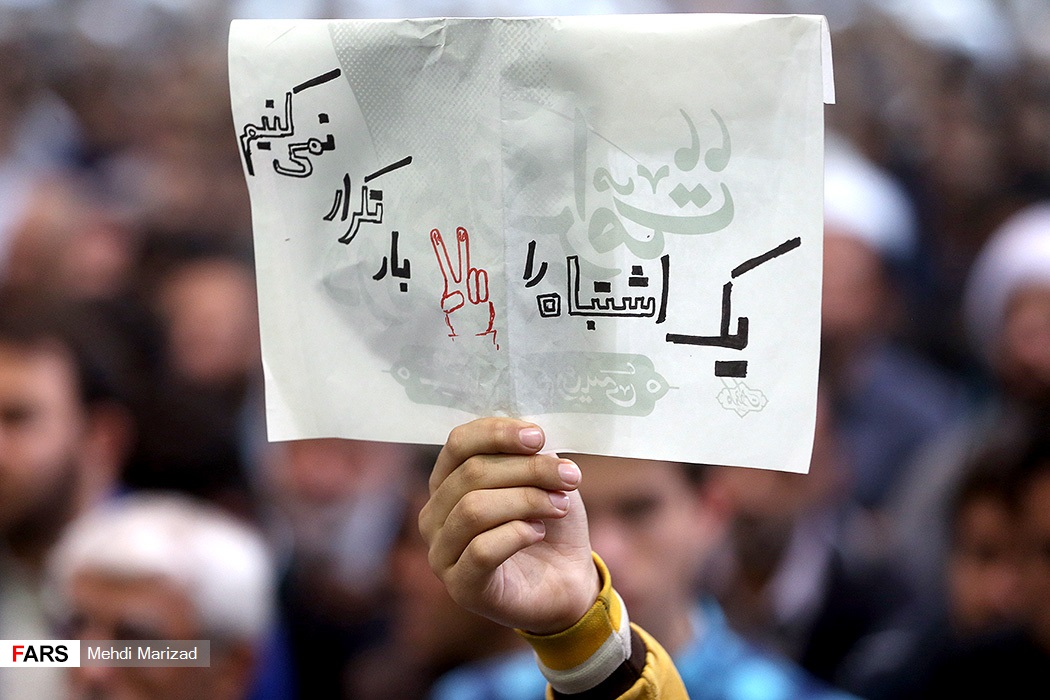 یک اشتباه را ✌ بار تکرار نمی کنیم
FARS Mehdi Marizad